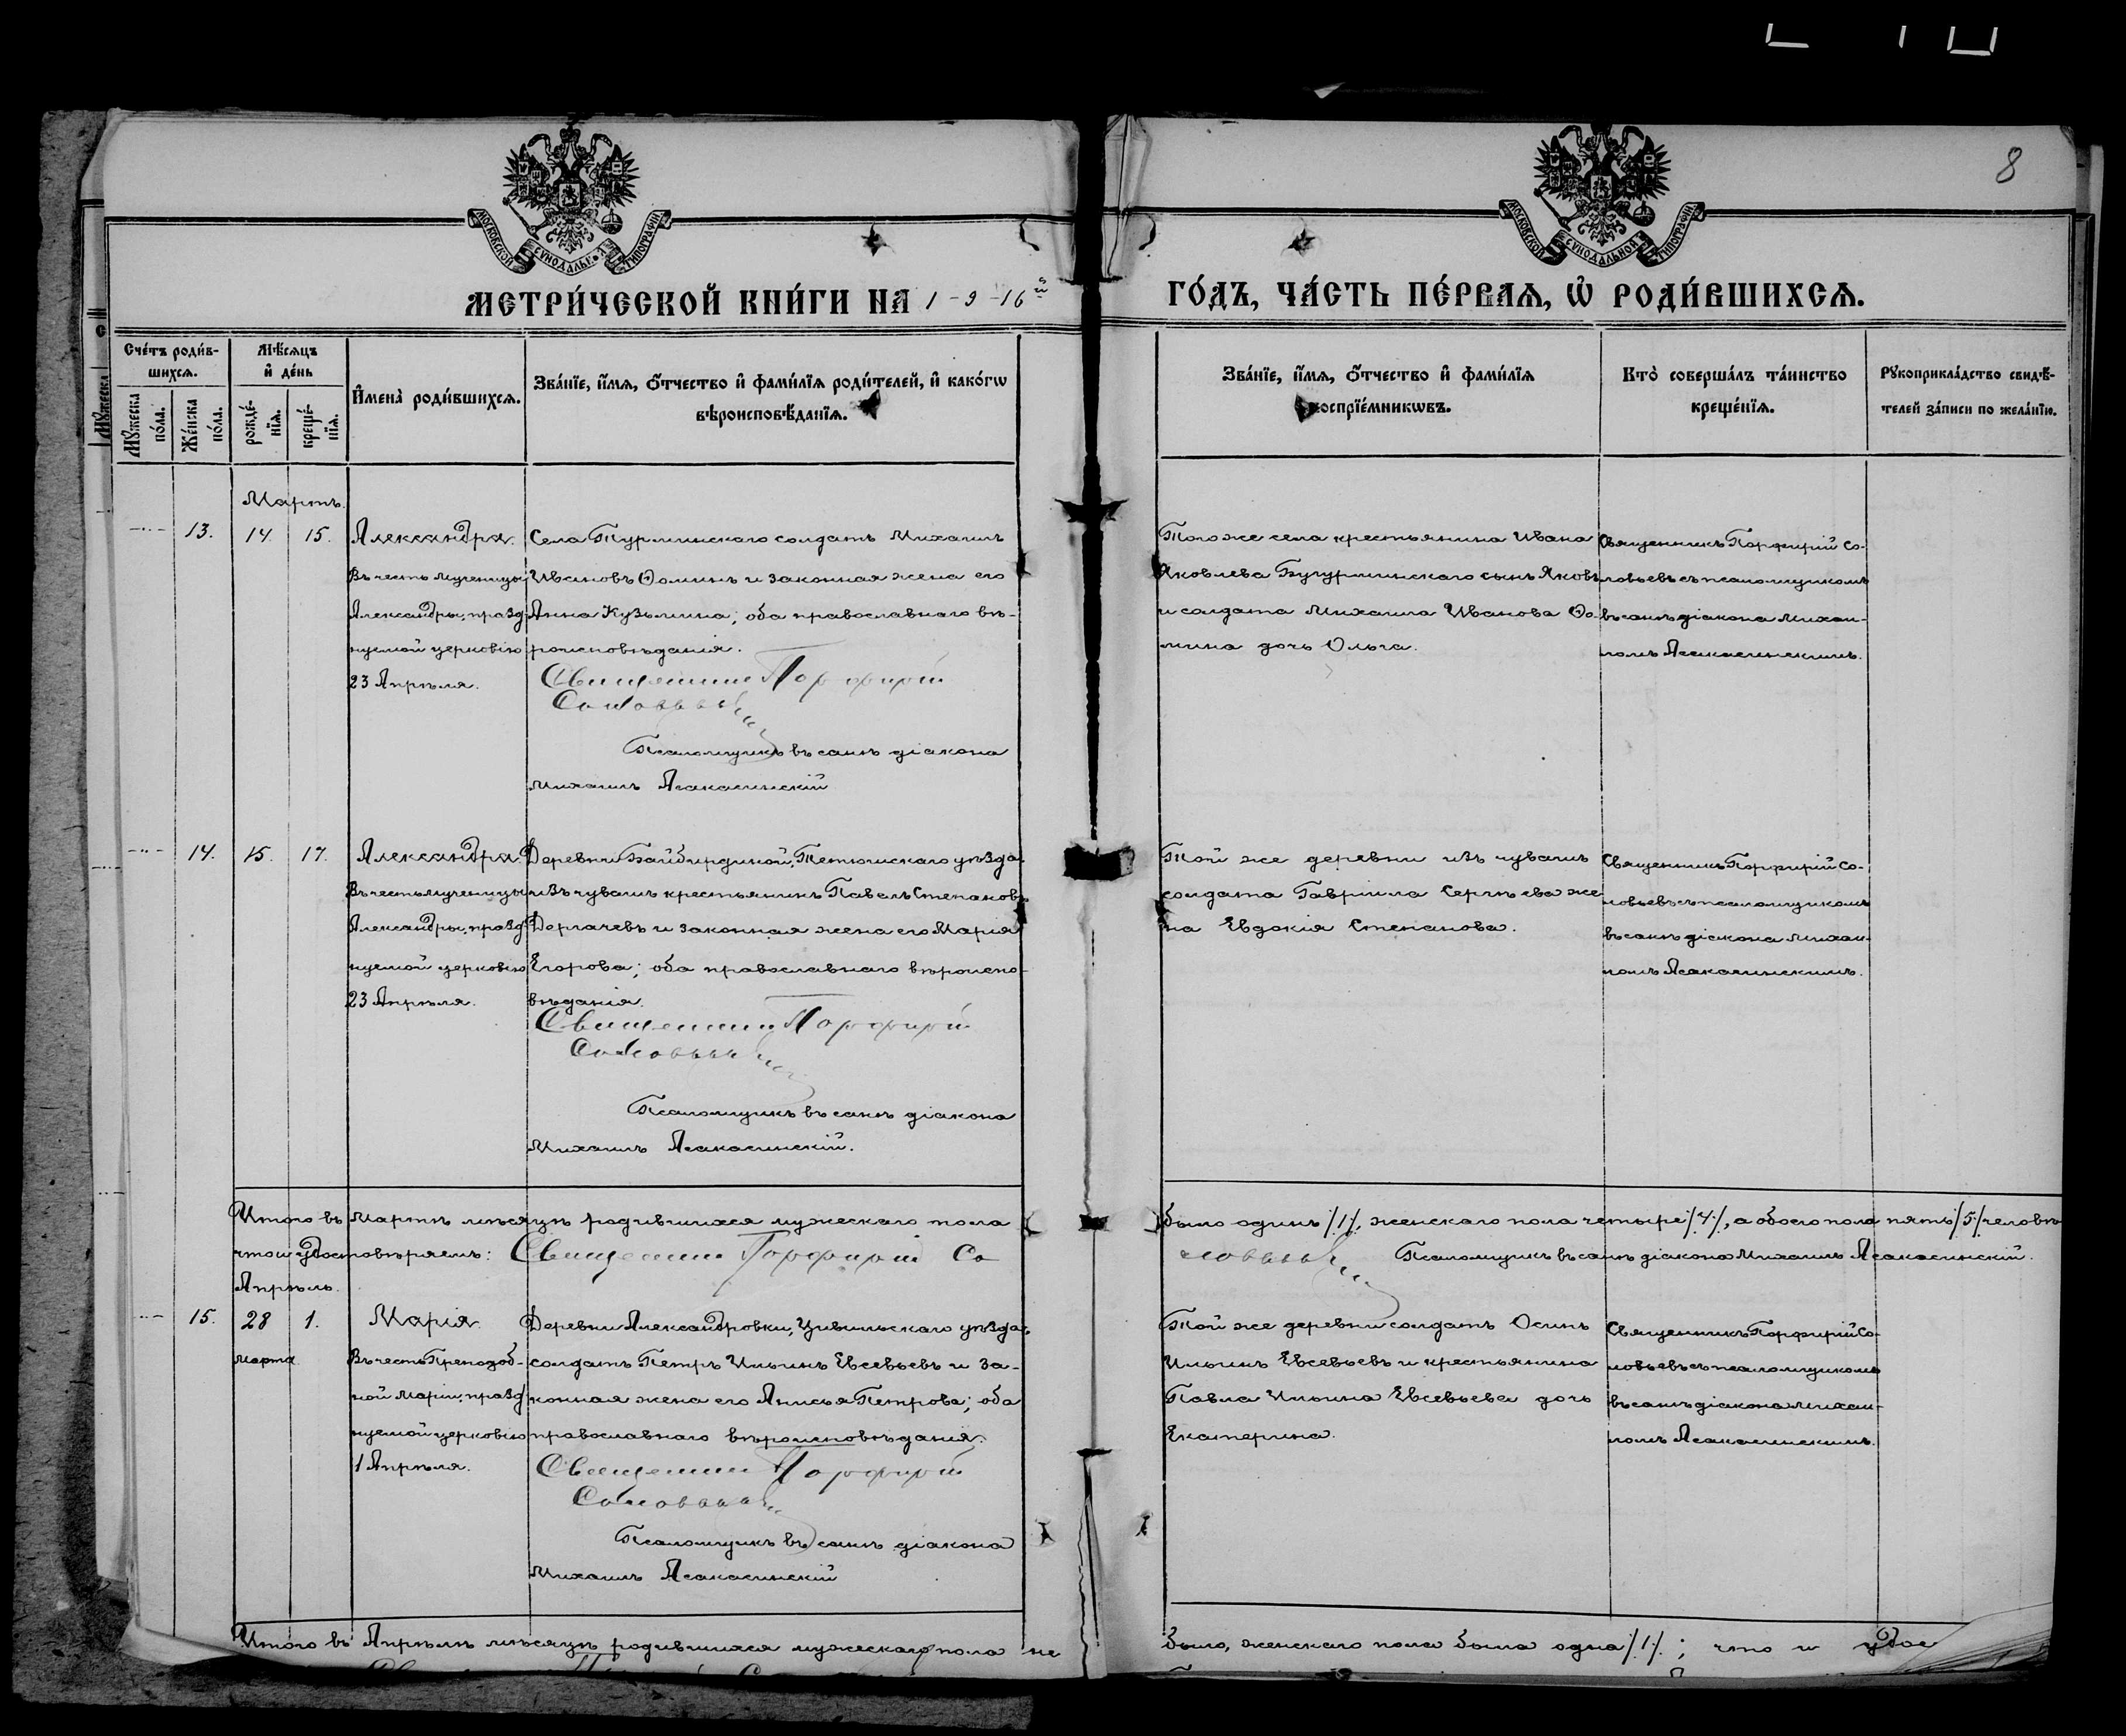 8
МОСКОВСКОЙ СѴНОДАЛЬНОЙ ТИПОГРАФІИ
МОСКОВСКОЙ СѴНОДАЛЬНОЙ ТИПОГРАФІИ
МЕТРИ́ЧЕСКОЙ КНИ́ГИ НА 1-9-16й ГО́ДЪ, ЧА́СТЬ ПЕ́РВАѦ, Ѡ҆ РОДИ́ВШИХСѦ.
Сче́тъ роди́в-
шихсѧ.
Мꙋжеска
по́ла.
Же́нска
по́ла.
Мѣ́сѧцъ
и҆ де́нь
рожде́-
нїѧ.
креще́-
нїѧ.
И҆мена̀ роди́вшихсѧ.
Зва́нїе, и҆́мѧ, ѻ҆́тчество и҆ фами́лїѧ роди́телей, и҆ како́гѡ
вѣроисповѣ́данїѧ.
Зва́нїе, и҆́мѧ, ѻ҆́тчество и҆ фами́лїѧ
воспрїе́мникѡвъ.
Кто̀ соверша́лъ та́инство
креще́нїѧ.
Рꙋкоприкла́дство свидѣ́-
телей за́писи по жела́нїю.
Мартъ.
13. 14. 15. Александра.
Въ честь мученицы
Александры, празд-
нуемой церковію
23 Апрѣля.
Села Турминскаго солдатъ Михаилъ
Ивановъ Ѳоминъ и законная жена его
Анна Кузьмина; оба православнаго вѣ-
роисповѣданія.
Священникъ Порфирій
Соловьевъ
Псаломщикъ въ санѣ діакона
Михаилъ Асакасинскій
Того же села крестьянина Ивана
Яковлева Бугурминскаго сынъ Яковъ
и солдата Михаила Иванова Ѳо-
мина дочь Ольга.
Священникъ Порфирій Со-
ловьевъ съ псаломщикомъ
въ санѣ діакона Михаи-
ломъ Асакасинскимъ.
14. 15. 17. Александра.
Въ честь мученицы
Александры, празд-
нуемой церковію
23 Апрѣля.
Деревни Байбирдиной, Тетюшскаго уѣзда,
изъ чувашъ крестьянинъ Павелъ Степановъ
Дергачевъ и законная жена его Марія
Егорова; оба православнаго вѣроиспо-
вѣданія.
Священникъ Порфирій
Соловьевъ
Псаломщикъ въ санѣ діакона
Михаилъ Асакасинскій.
Той же деревни изъ чувашъ
солдата Гавріила Сергѣева же-
на Евдокія Степанова.
Священникъ Порфирій Со-
ловьевъ съ псаломщикомъ
въ санѣ діакона Михаи-
ломъ Асакасинскимъ.
Итого въ Мартѣ мѣсяцѣ родившихся мужескаго пола было одинъ /1/, женскаго пола четыре /4/, а обоего пола пять /5/ человѣкъ
что и удостовѣряемъ: Священникъ Порфирій Соловьевъ Псаломщикъ въ санѣ діакона Михаилъ Асакасинскій.
Апрѣль.
15. 28 1. Марія
марта
Въ честь Преподоб-
ной Маріи, празд-
нуемой церковію
1 Апрѣля.
Деревни Александровки, Цивильскаго уѣзда,
солдатъ Петръ Ильинъ Евсевьевъ и за-
конная жена его Анисья Петрова; оба
православнаго вѣроисповѣданія.
Священникъ Порфирій
Соловьевъ
Псаломщикъ въ санѣ діакона
Михаилъ Асакасинскій
Той же деревни солдатъ Осипъ
Ильинъ Евсевьевъ и крестьянина
Павла Ильина Евсевьева дочь
Екатерина.
Священникъ Порфирій Со-
ловьевъ съ псаломщикомъ
въ санѣ діакона Михаи-
ломъ Асакасинскимъ.
Итого въ Апрѣлѣ мѣсяцѣ родившихся мужескаго пола не было, женскаго пола была одна /1/; что и удос